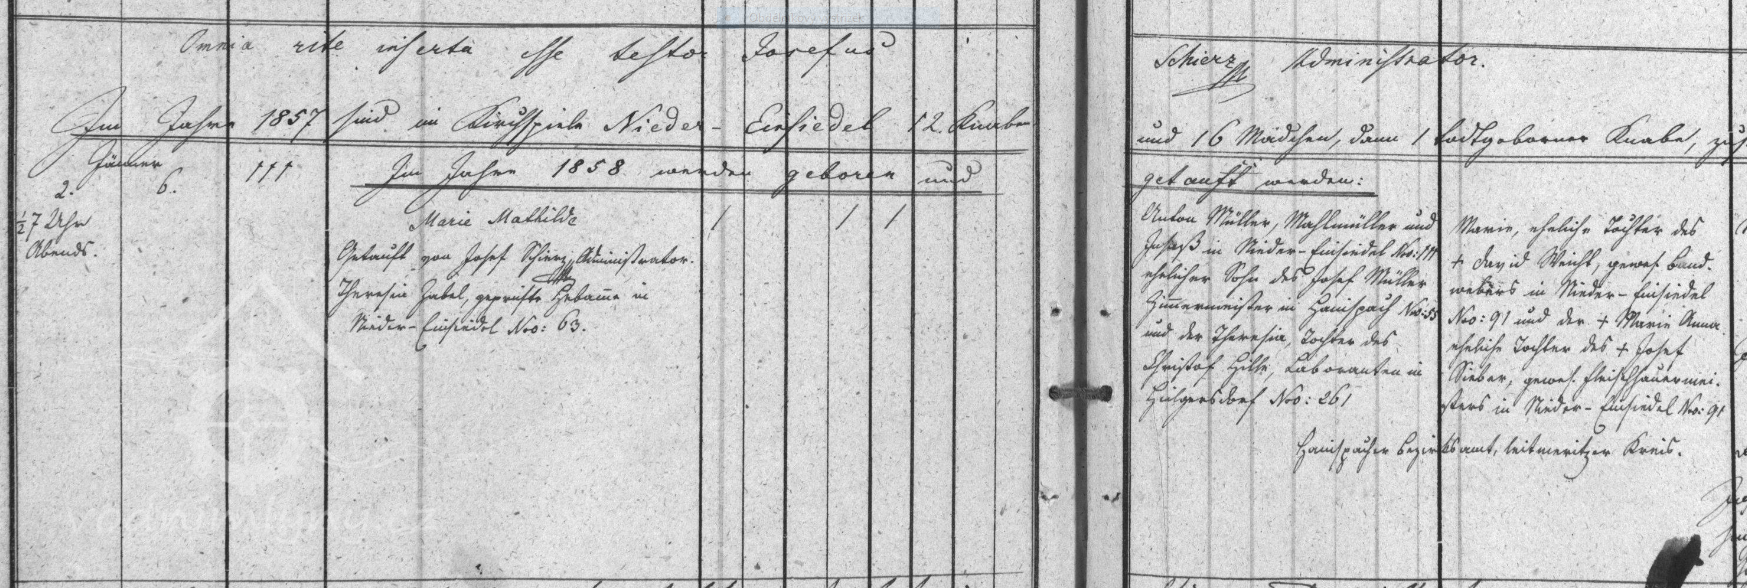 Omnia rite inserta esse testor Josefus
Schierz Administrator.
Im Jahre 1857 sind im Kirchspiele Nieder-Einsiedel 12 Knaben
und 16 Mädchen, dann 1 todtgeborner Knabe,
Jänner
2. 6. 111 Im Jahre 1858 werden geboren und
getauft werden:
½7 Uhr
Abends.
Marie Mathilde / / /
Getauft von Josef Schierz, Administrator.
Theresia Zabel, geprüfte Hebamme in
Nieder-Einsiedel Nro: 63.
Anton Müller, Mahlmüller und
Insaß in Nieder-Einsiedel Nro: 111
ehelicher Sohn des Josef Müller
Zimmermeister in Hainspach Nro: 55
und der Theresia, Tochter des
Christof Hille, Laboranten in
Hilgersdorf Nro: 261
Marie, eheliche Tochter des
+ David Weicht, gewes. Band-
webers in Nieder-Einsiedel
Nro: 91 und der + Marie Anna
eheliche Tochter des + Josef
Sieber, gewes. Fleischhauermei-
sters in Nieder-Einsiedel Nro: 91
Hainspacher Bezirksamt, leitmeritzer Kreis.
vodnimlyny.cz